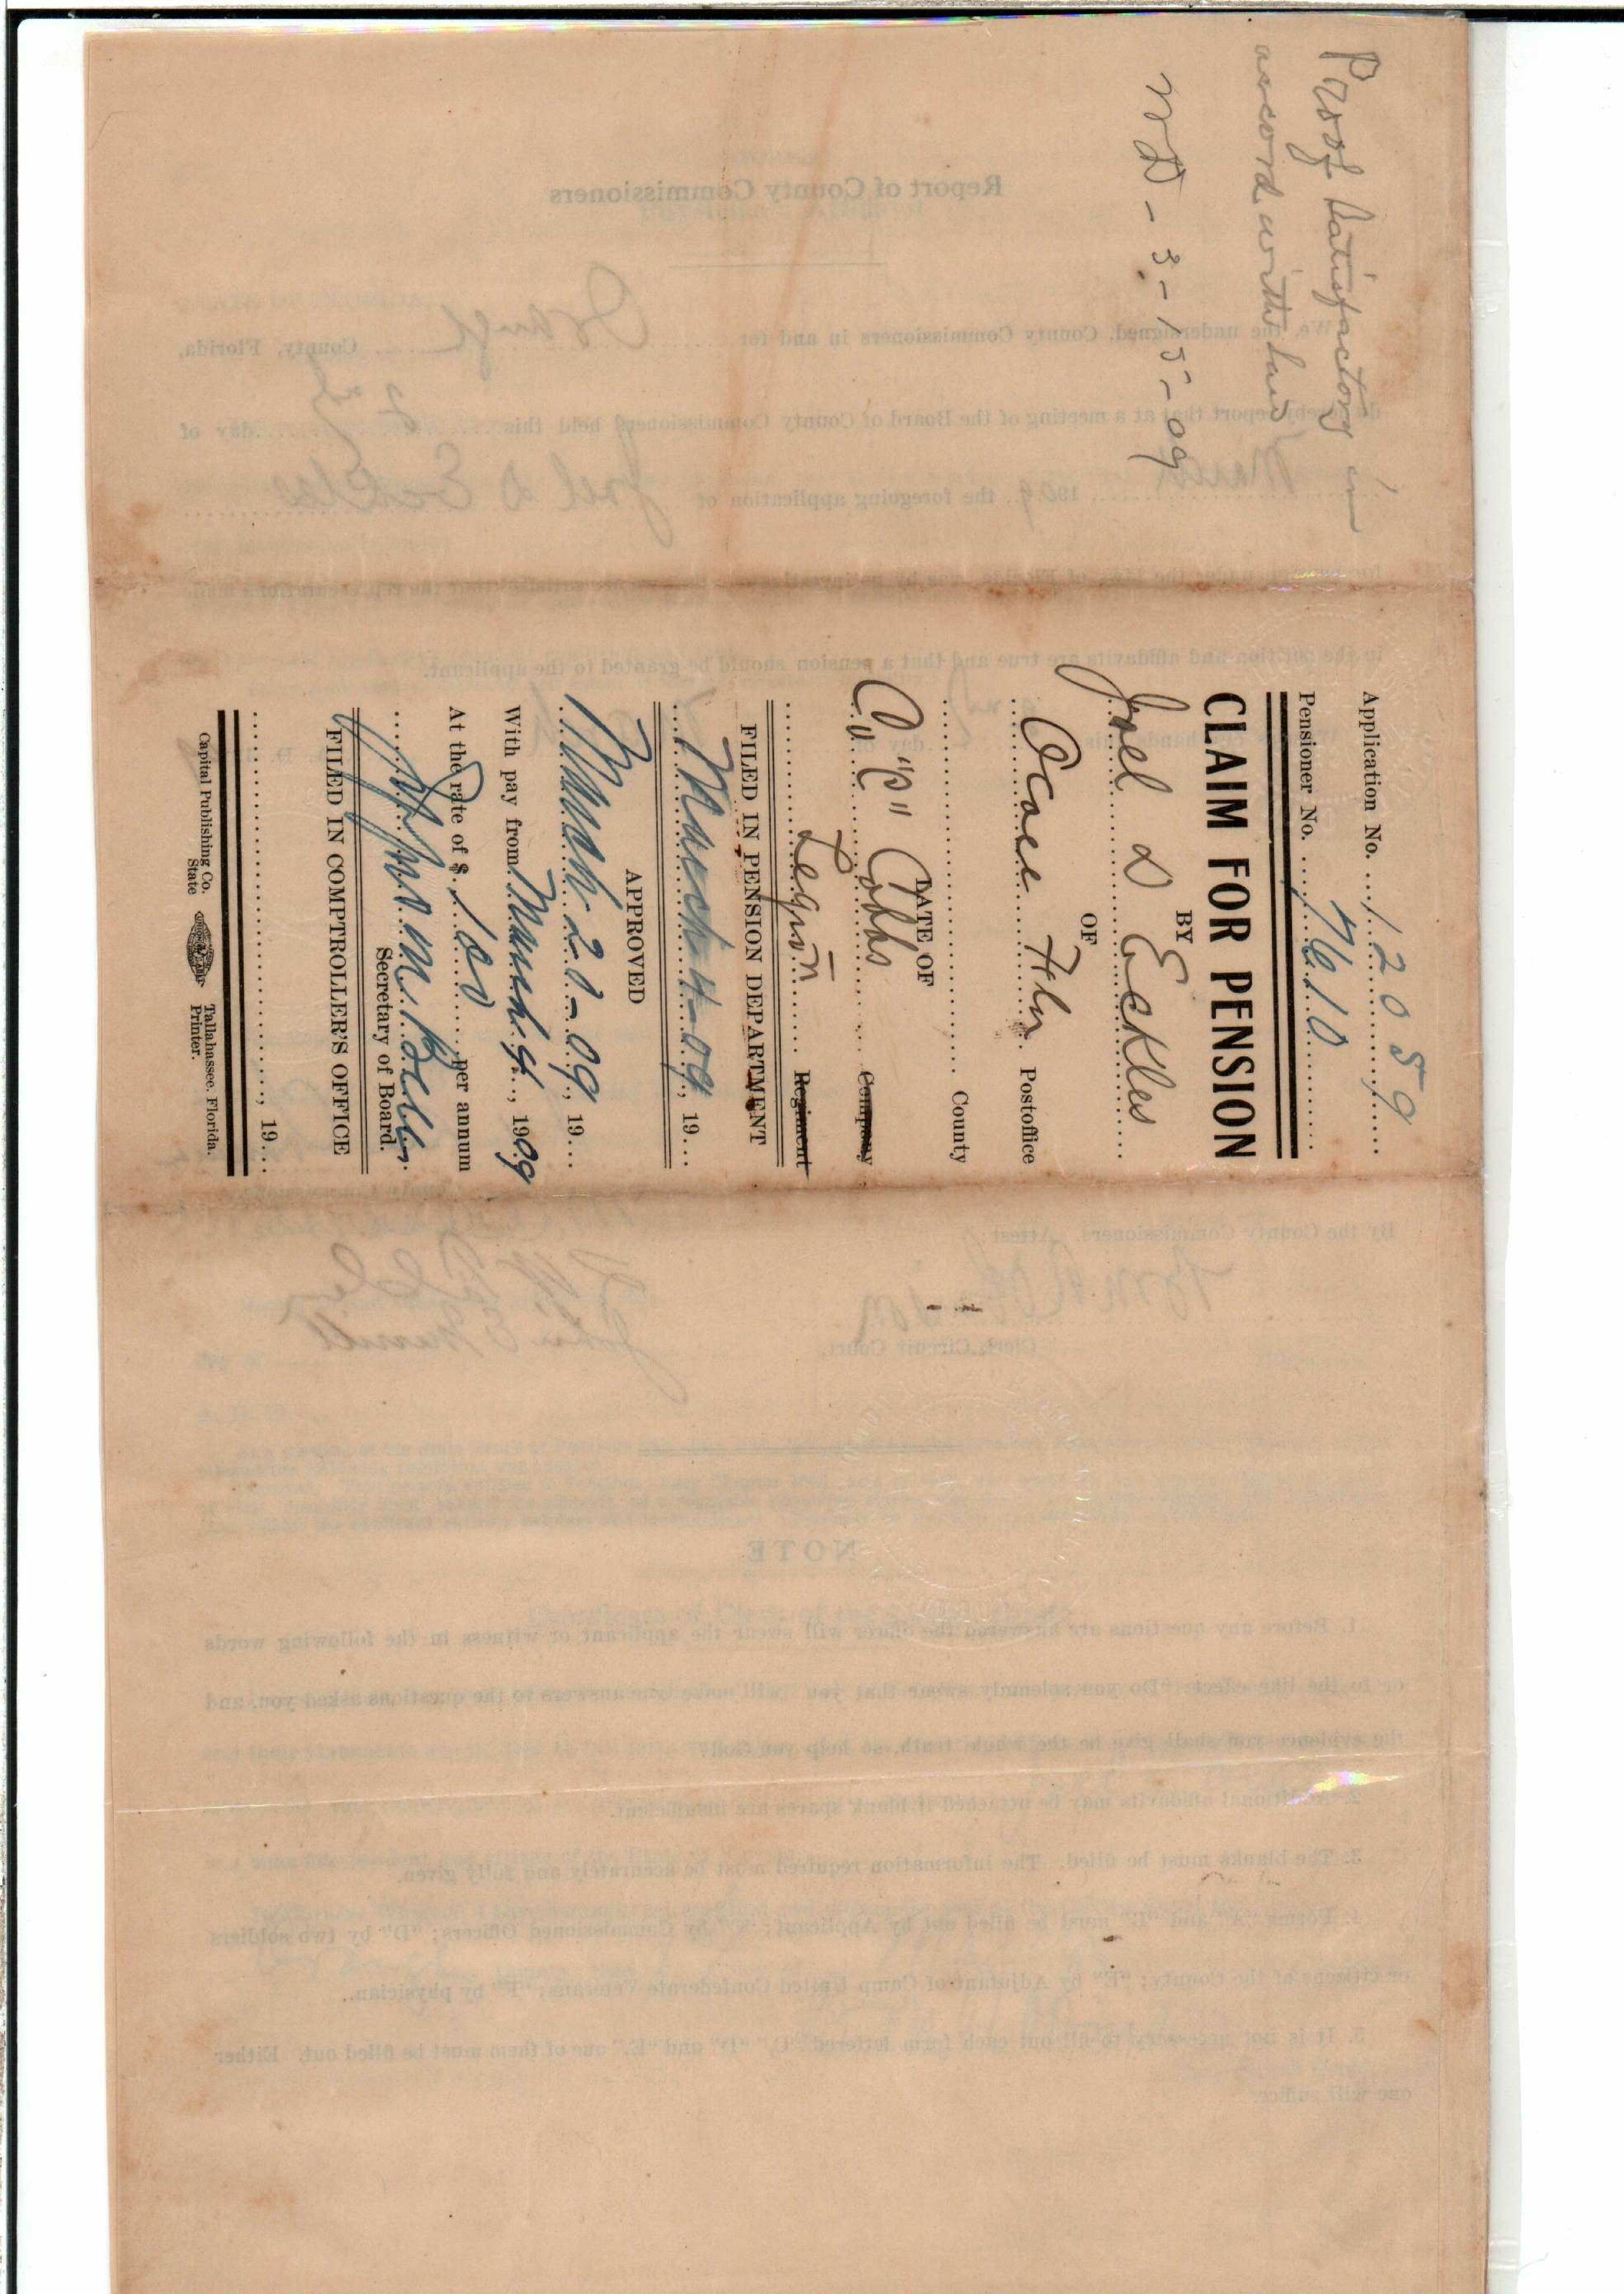 Proof satisfactory in
accord with law
WD - 3-15-09
Application No. 12059
Pensioner No. 7610
CLAIM FOR PENSION
BY
Joel D Eckles
OF
Ocoee Fla. Postoffice
County
DATE OF
Co "C" Cobbs Company
Legion Regiment
FILED IN PENSION DEPARTMENT
March 4-09, 19...
APPROVED
March 20-09, 19...
With pay from March 4, 1909
At the rate of $ 100 per annum
Secretary of Board.
FILED IN COMPTROLLER'S OFFICE
, 19...
Capital Publishing Co.
State
Tallahassee, Florida.
Printer.
Report of County Commissioners
We, the undersigned, County Commissioners in and for Orange County, Florida,
do hereby report that at a meeting of the Board of County Commissioners held this 2nd day of
March 1909, the foregoing application of Joel D Eckles
in the petition and affidavits are true and that a pension should be granted to the applicant.
By the County Commissioners. Attest:
Clerk Circuit Court.
NOTE
1. Before any questions are answered the officer will swear the applicant or witness in the following words
or to the like effect: "Do you solemnly swear that you will make true answers to the questions asked you, and
the evidence you shall give be the whole truth, so help you God?"
2. Additional affidavits may be attached if blank spaces are insufficient.
3. The blanks must be filled. The information required must be accurately and fully given.
4. Forms "A" and "B" must be filled out by Applicant; by Commissioned Officers; "D" by two soldiers
or citizens of the County; "E" by Adjutant of Camp United Confederate Veterans; "F" by physician.
5. It is not necessary to fill out each form lettered "C," "D" and "E," one of them must be filled out. Either
one will suffice.